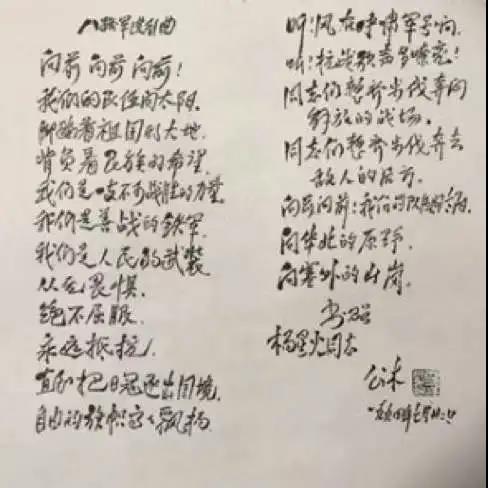 八路军进行曲
向前 向前 向前!
我们的队伍向太阳.
脚踏着祖国的大地.
背负着民族的希望.
我们是一支不可战胜的力量.
我们是善战的铁军
我们是人民的武装.
从无畏惧.
绝不屈服.
永远抵抗.
直到把日寇逐出国境.
自由的旗帜高高飘扬.
听!风在呼啸军号响.
听!抗战歌声多嘹亮!
同志们整齐步伐奔向
解放的战场.
同志们整齐步伐奔去
敌人的后方.
向前向前!我们的队伍向太阳.
向华北的原野.
向塞外的山岗.
书赠
杨星火同志
公木